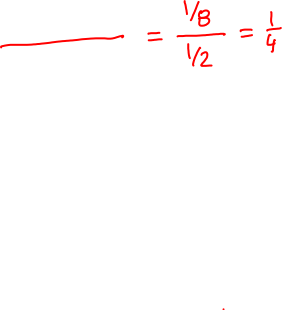 ____ = 1/8 / 1/2 = 1/4